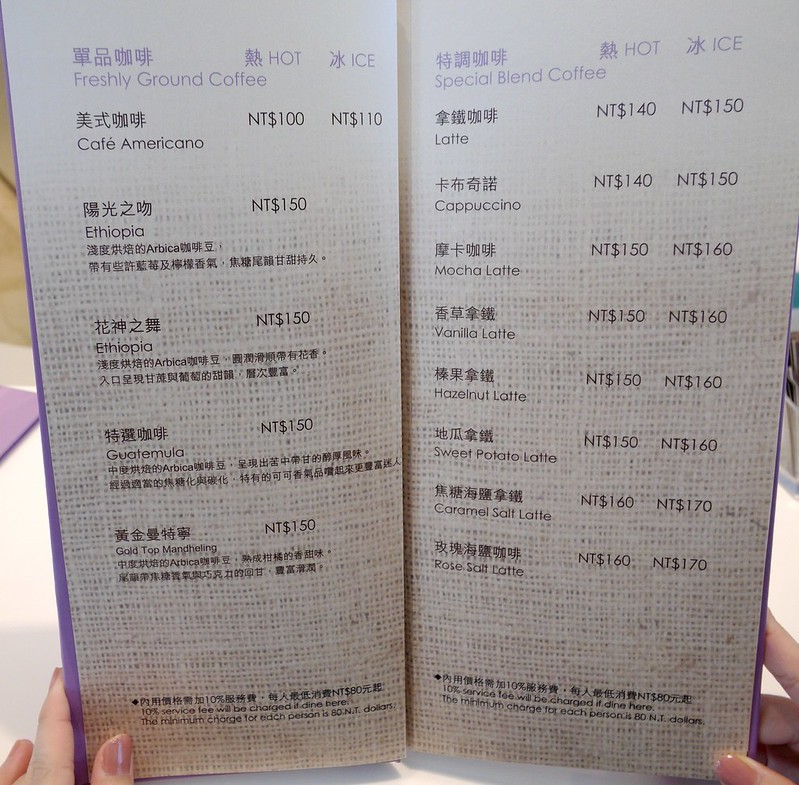 單品咖啡 熱 HOT 冰 ICE
Freshly Ground Coffee
美式咖啡 NT$100 NT$110
Café Americano
陽光之吻 NT$150
Ethiopia
淺度烘焙的Arbica咖啡豆，
帶有些許藍莓及檸檬香氣，焦糖尾韻甘甜持久。
花神之舞 NT$150
Ethiopia
淺度烘焙的Arbica咖啡豆，圓潤滑順帶有花香。
入口呈現甘蔗與葡萄的甜韻，層次豐富。
特選咖啡 NT$150
Guatemula
中度烘焙的Arbica咖啡豆，呈現出苦中帶甘的醇厚風味。
經過適當的焦糖化與碳化，特有的可可香氣品嚐起來更豐富迷人
黃金曼特寧 NT$150
Gold Top Mandheling
中度烘焙的Arbica咖啡豆，熟成柑橘的香甜味。
尾韻帶焦糖香氣與巧克力的回甘，豐富滑潤。
◆內用價格需加10%服務費，每人最低消費NT$80元起
10% service fee will be charged if dine here.
The minimum charge for each person is 80 N.T. dollars.
特調咖啡 熱 HOT 冰 ICE
Special Blend Coffee
拿鐵咖啡 NT$140 NT$150
Latte
卡布奇諾 NT$140 NT$150
Cappuccino
摩卡咖啡 NT$150 NT$160
Mocha Latte
香草拿鐵 NT$150 NT$160
Vanilla Latte
榛果拿鐵 NT$150 NT$160
Hazelnut Latte
地瓜拿鐵 NT$150 NT$160
Sweet Potato Latte
焦糖海鹽拿鐵 NT$160 NT$170
Caramel Salt Latte
玫瑰海鹽咖啡 NT$160 NT$170
Rose Salt Latte
◆內用價格需加10%服務費，每人最低消費NT$80元起
10% service fee will be charged if dine here.
The minimum charge for each person is 80 N.T. dollars.